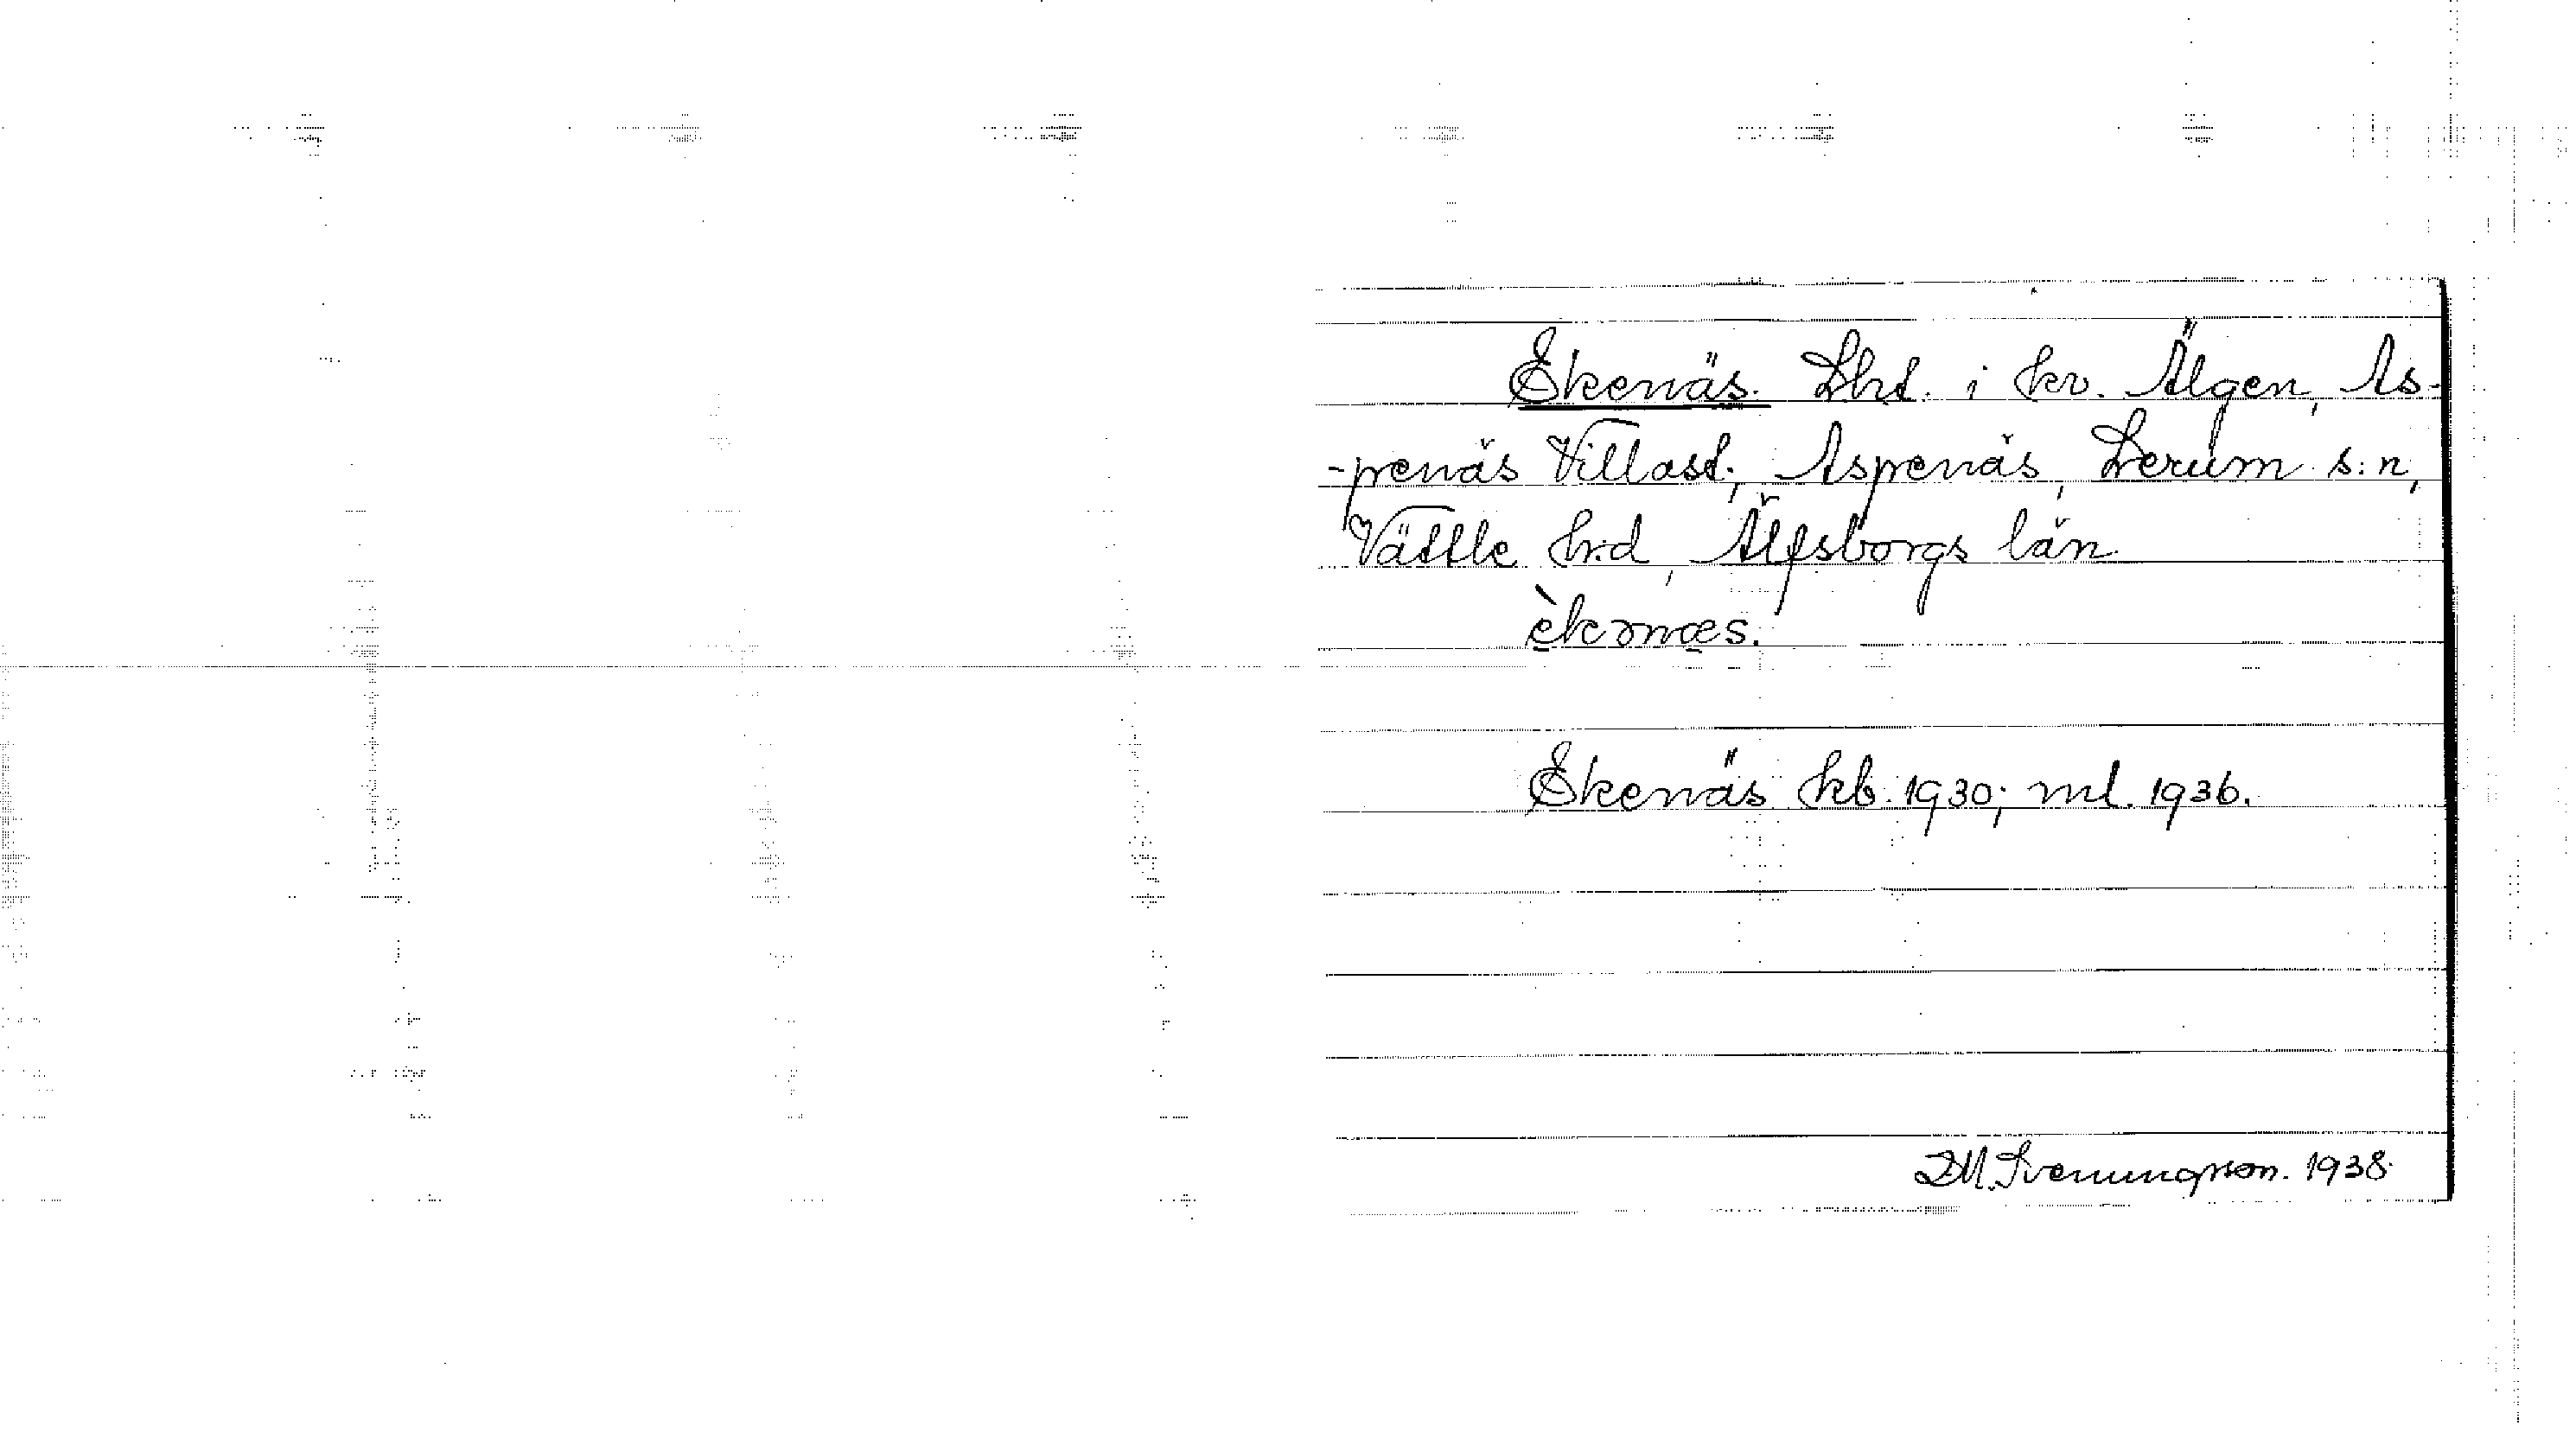 Ekenäs. Lht. i kv. Älgen, As-
-penäs Villast., Aspenäs, Lerum s:n,
Vättle hrd, Älfsborgs län.
Ekenäs kb. 1930; ml. 1936.
D.M. Svenungsson. 1938.